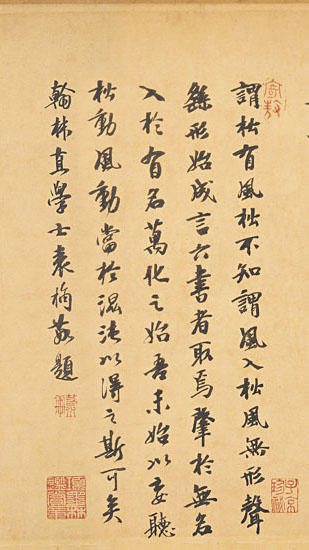 謂松有風松不知謂風入松風無形聲
繇形始成言六書者取焉肇於無名
入於有名萬化之始吾未始以妄聽
松動風動當於混沌以得之斯可矣
翰林直學士袁桷敬題
子京珍秘